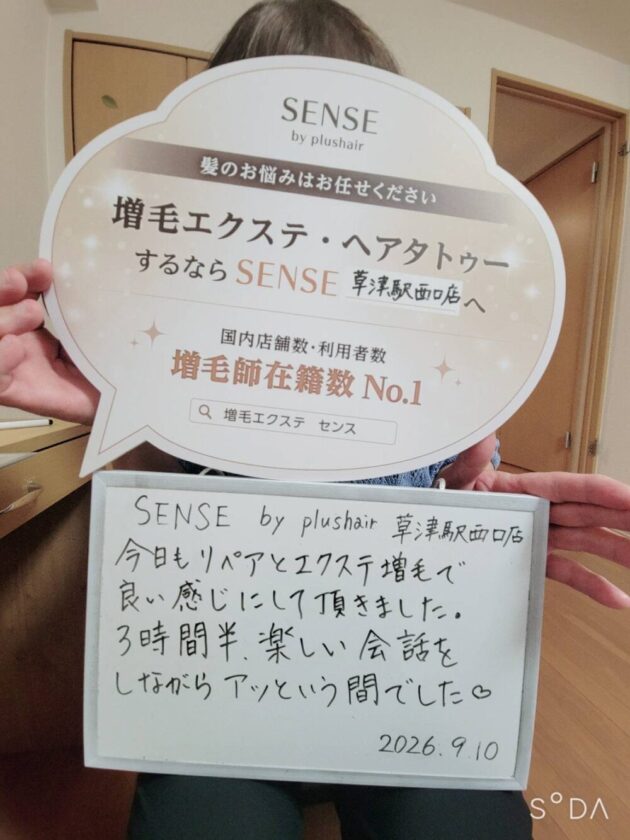 SENSE
by plushair
髪のお悩みはお任せください
増毛エクステ・ヘアタトゥー
するなら SENSE 草津駅西口店へ
国内店舗数・利用者数
増毛師在籍数 No.1
増毛エクステ センス
SENSE by plushair 草津駅西口店
今日もリペアとエクステ増毛で
良い感じにして頂きました。
3時間半、楽しい会話を
しながらアッという間でした♡
2026.9.10
SODA